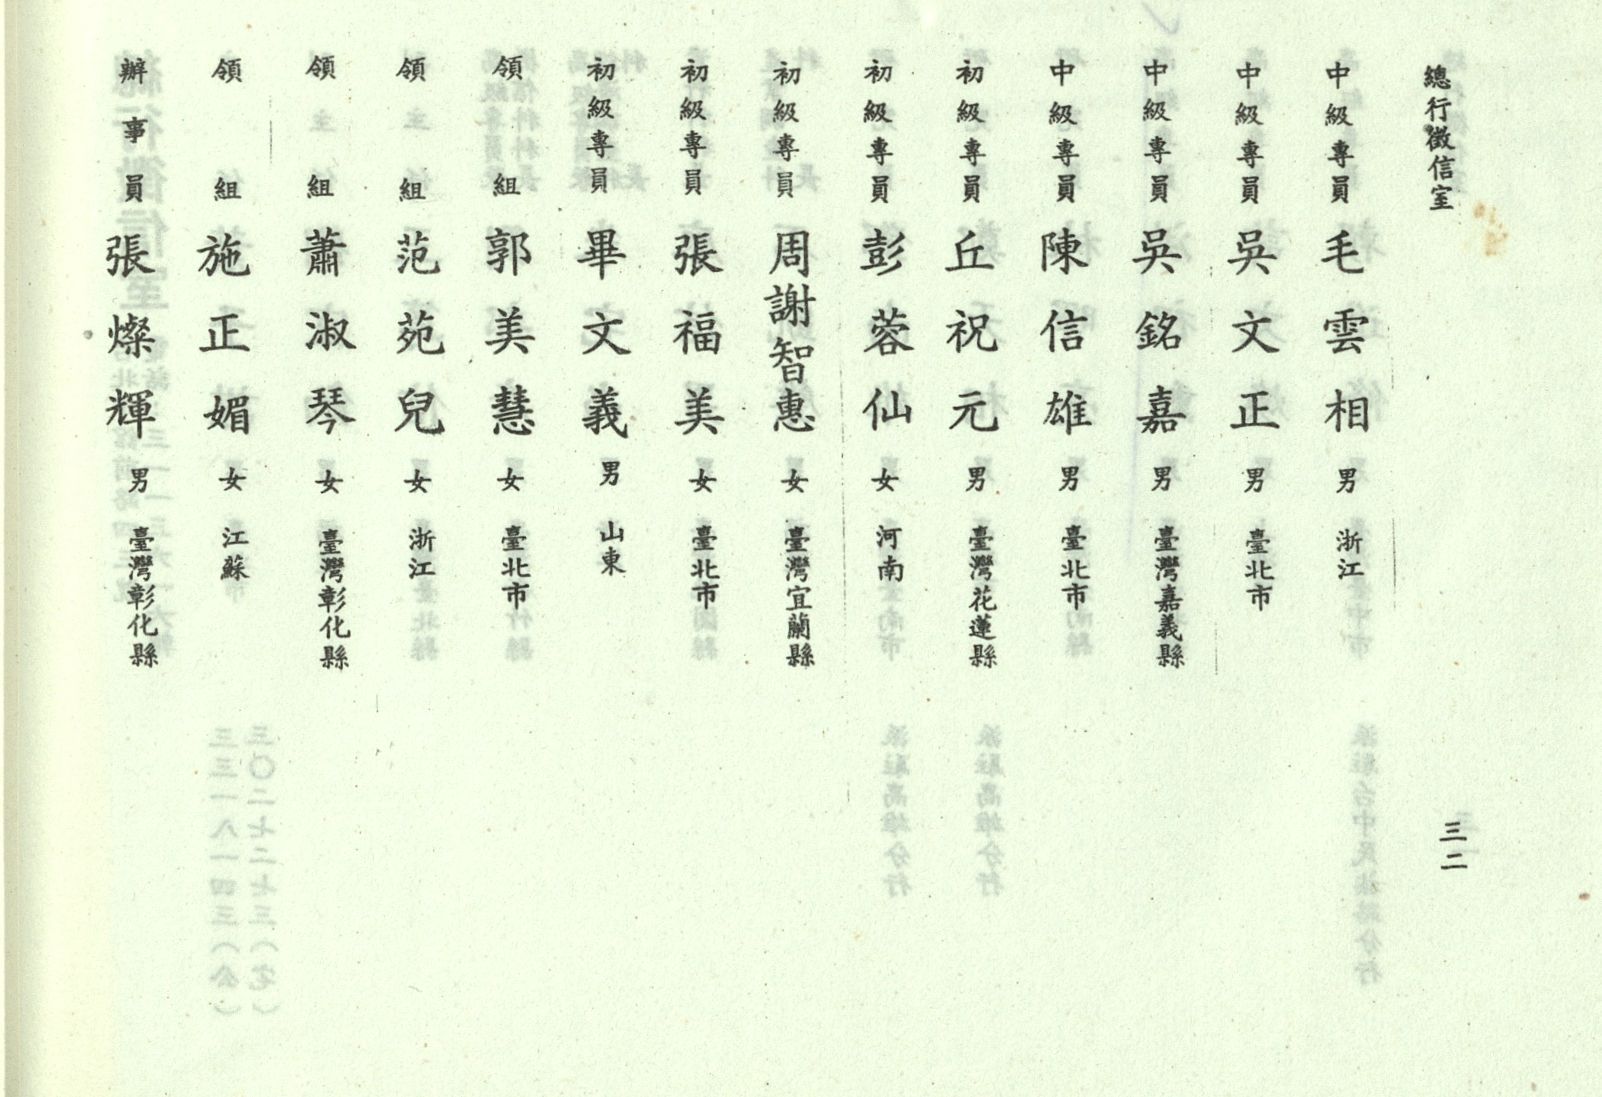 總行徵信室
中級專員 毛雲相 男 浙江
中級專員 吳文正 男 臺北市
中級專員 吳銘嘉 男 臺灣嘉義縣
中級專員 陳信雄 男 臺北市
初級專員 丘祝元 男 臺灣花蓮縣
初級專員 彭蓉仙 女 河南
初級專員 周謝智惠 女 臺灣宜蘭縣
初級專員 張福美 女 臺北市
初級專員 畢文義 男 山東
領組 郭美慧 女 臺北市
領組 范苑兒 女 浙江
領組 蕭淑琴 女 臺灣彰化縣
領組 施正媚 女 江蘇
辦事員 張燦輝 男 臺灣彰化縣
三二